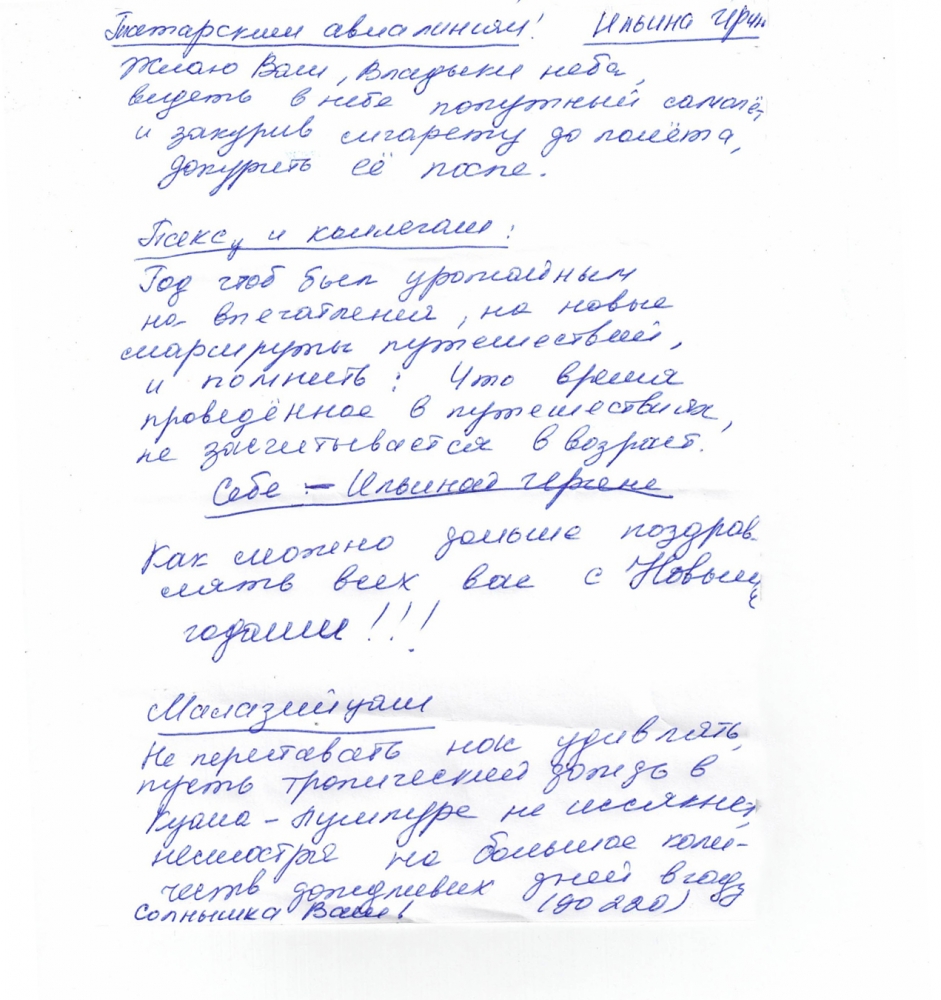 Татарским авиалиниям! Ильина Ирин
Желаю Вам, Владыки неба,
видеть в небе попутный самолёт
и закурив сигарету до полёта,
докурить её после.
и коллегам:
Год чтоб был урожайным
на впечатления, на новые
маршруты путешествий,
и помнить: Что время
проведённое в путешествиях,
не засчитывается в возраст.
Себе - Ильиной Ирине
Как можно дольше поздрав-
лять всех вас с Новыми
годами!!!
Малазийцам
Не переставать нас удивлять,
пусть тропический дождь в
Куала-Лумпуре не иссякнет,
несмотря на большое коли-
честв дождливых дней в году
Солнышка Вам! (до 220)